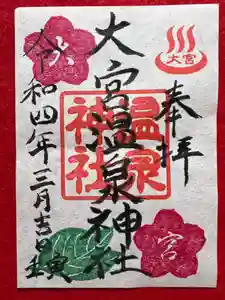 奉拝
大宮
大宮温泉神社
温泉神社
令和四年三月吉日
壬寅
大
宮